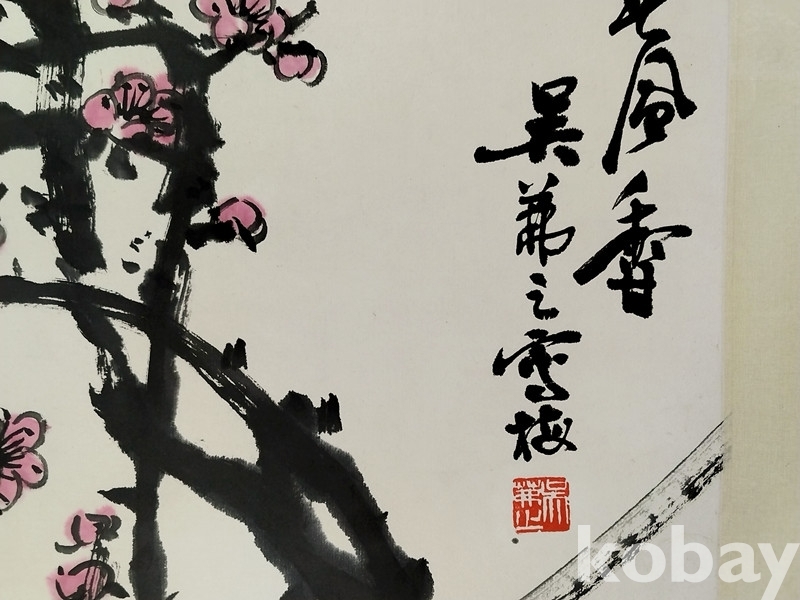 風香
吳茀之寫梅
吳茀之
kobay